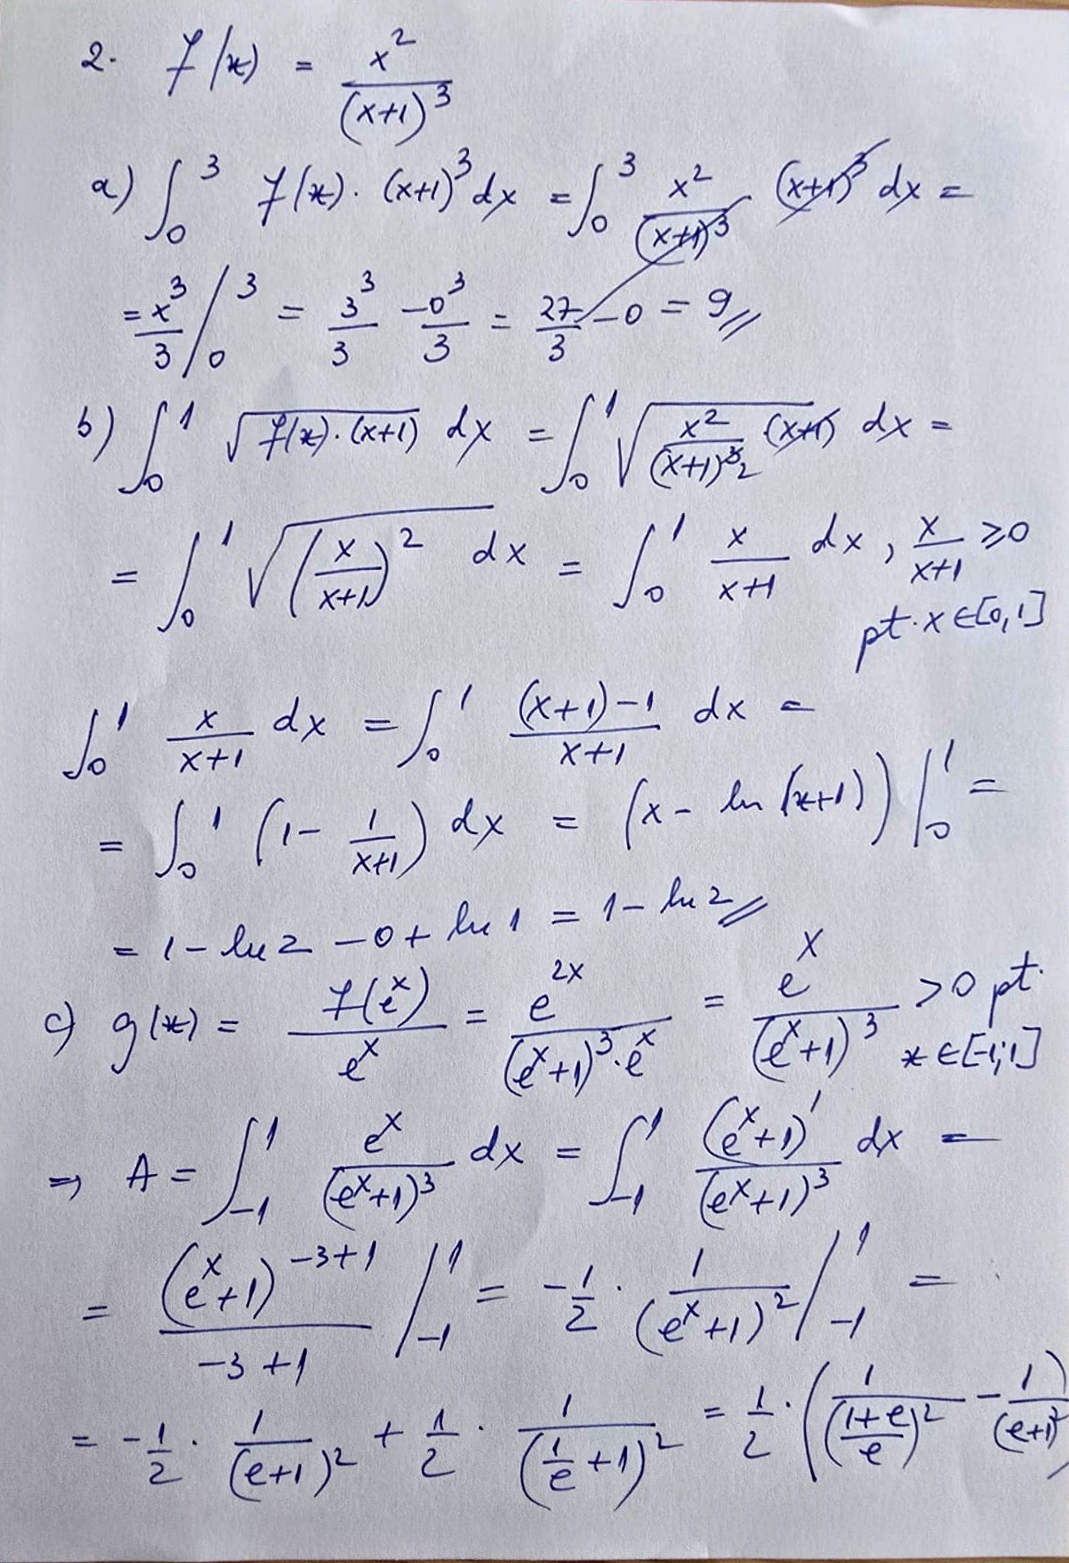 2. f(x) = x²/(x+1)³
a) ∫₀³ f(x)·(x+1)³dx = ∫₀³ x²/(x+1)³ (x+1)³ dx =
= x³/3 |₀³ = 3³/3 - 0³/3 = 27/3 - 0 = 9
b) ∫₀¹ √(f(x)·(x+1)) dx = ∫₀¹ √(x²/(x+1)³² (x+1)) dx =
= ∫₀¹ √((x/(x+1))²) dx = ∫₀¹ x/(x+1) dx, x/(x+1) ≥ 0
pt. x ∈ [0,1]
∫₀¹ x/(x+1) dx = ∫₀¹ ((x+1)-1)/(x+1) dx =
= ∫₀¹ (1 - 1/(x+1)) dx = (x - ln(x+1)) |₀¹ =
= 1 - ln 2 - 0 + ln 1 = 1 - ln 2
c) g(x) = f(eˣ)/eˣ = e²ˣ/((eˣ+1)³·eˣ) = eˣ/(eˣ+1)³ > 0 pt.
x ∈ [-1;1]
⇒ A = ∫₋₁¹ eˣ/(eˣ+1)³ dx = ∫₋₁¹ (eˣ+1)'/(eˣ+1)³ dx =
= (eˣ+1)⁻³⁺¹/(-3+1) |₋₁¹ = -1/2 · 1/(eˣ+1)² |₋₁¹ =
= -1/2 · 1/(e+1)² + 1/2 · 1/(1/e+1)² = 1/2 · (1/((1+e)/e)² - 1/(e+1)²)